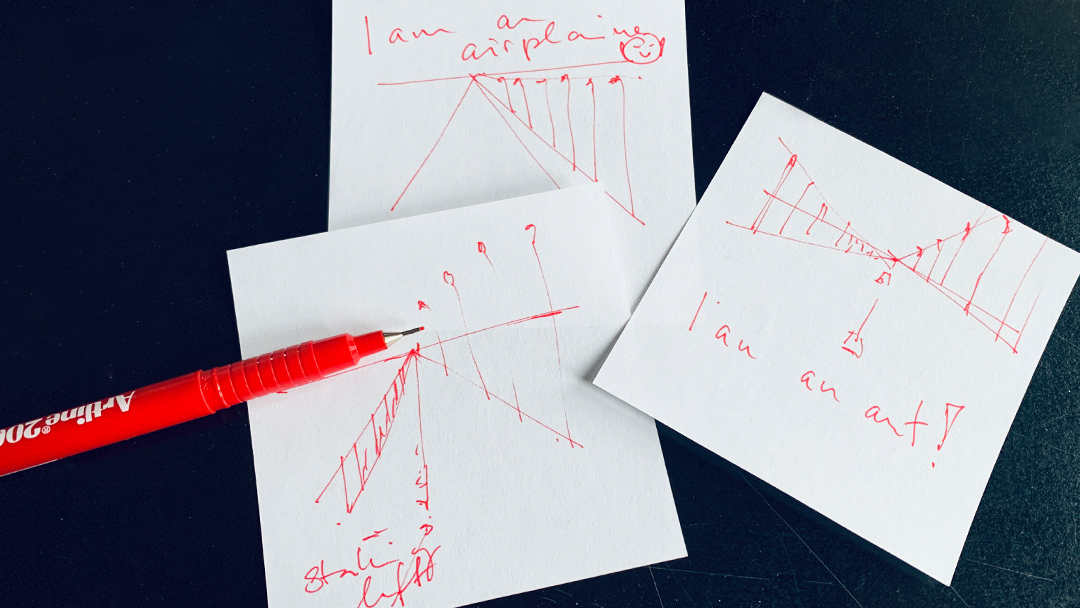 I am an
airplaine
I am
an
ant!
left
Artline 200